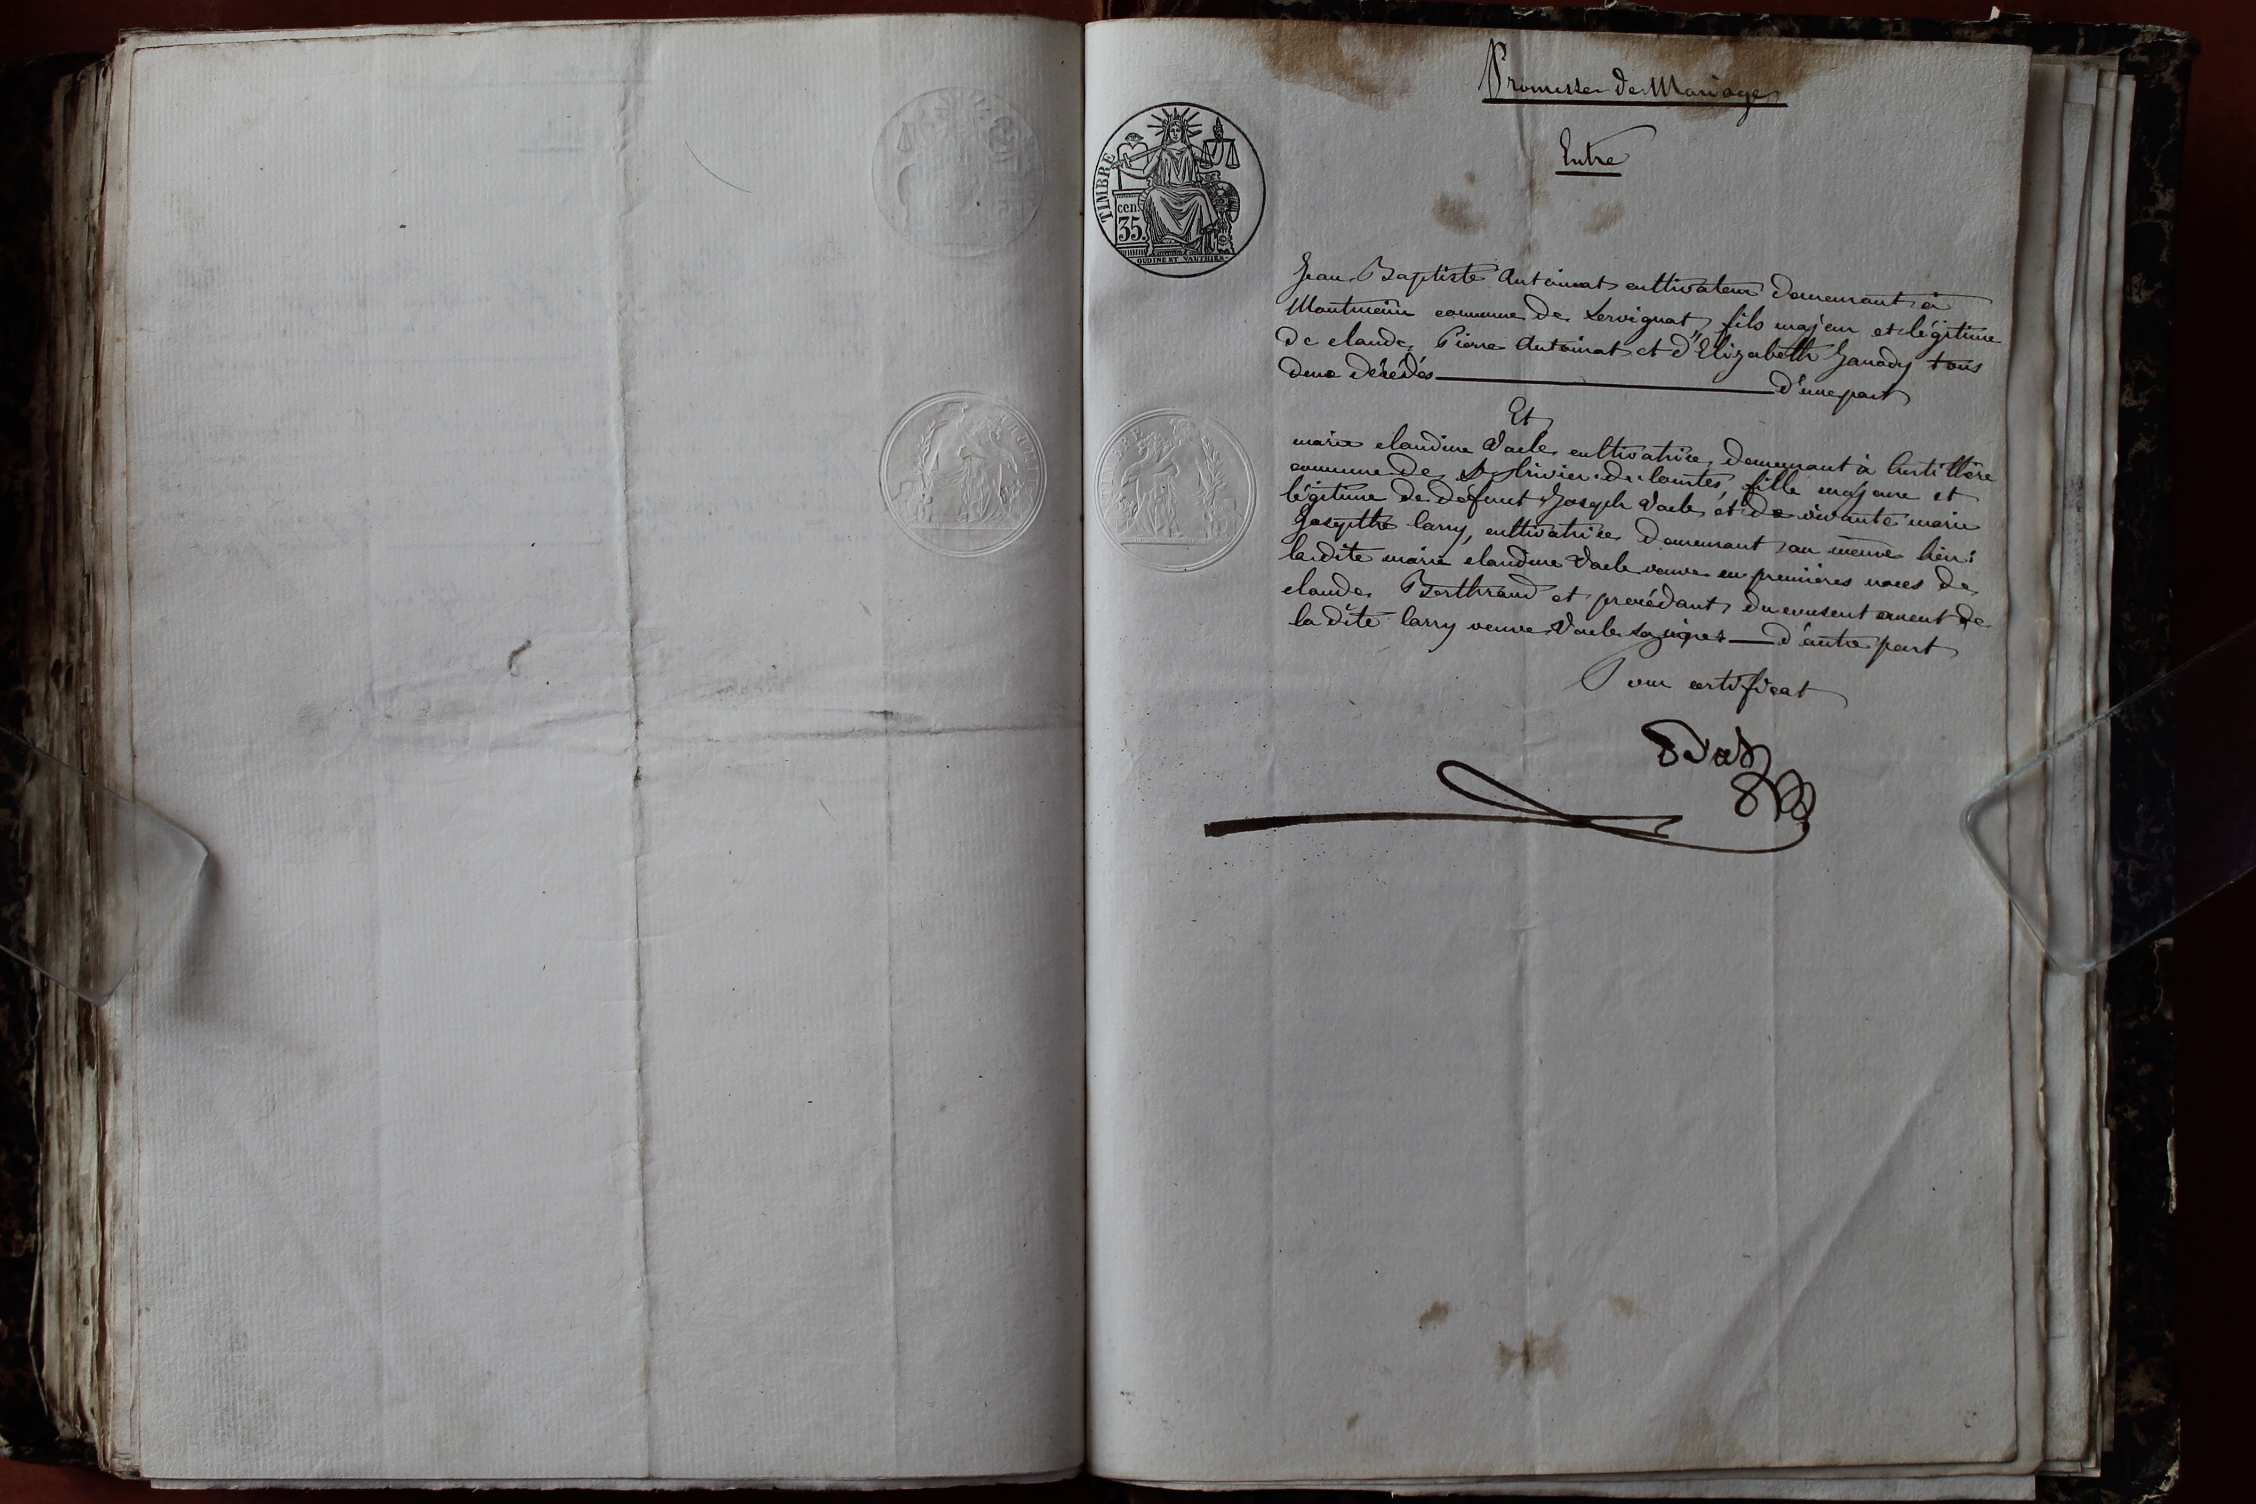 Promesse de Mariage
Entre
TIMBRE
cen.
35.
OUDINÉ ET VAUTHIER
Jean Baptiste Antoinat cultivateur demeurant à
Montmein commune de Servignat, fils majeur et légitime
de claude Pierre Antoinat et d'Elizabeth Janody tous
deux décédés d'une part
Et
marie claudine Vacle cultivatrice, demeurant à
commune de St trivier de Courtes, fille majeure et
légitime de défunt Joseph Vacle et de vivante marie
Josepthe Carry, cultivatrice demeurant au même lieu;
la dite marie claudine Vacle veuve en premières noces de
claude Berthrand et procédant du consentement de
la dite Carry veuve Vacle d'autre part
Pour certificat